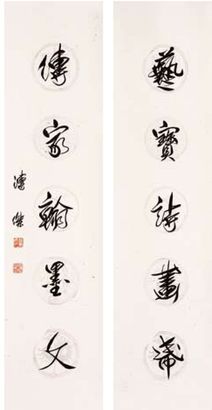 藝寶詩畫
傳家翰墨文
溥傑